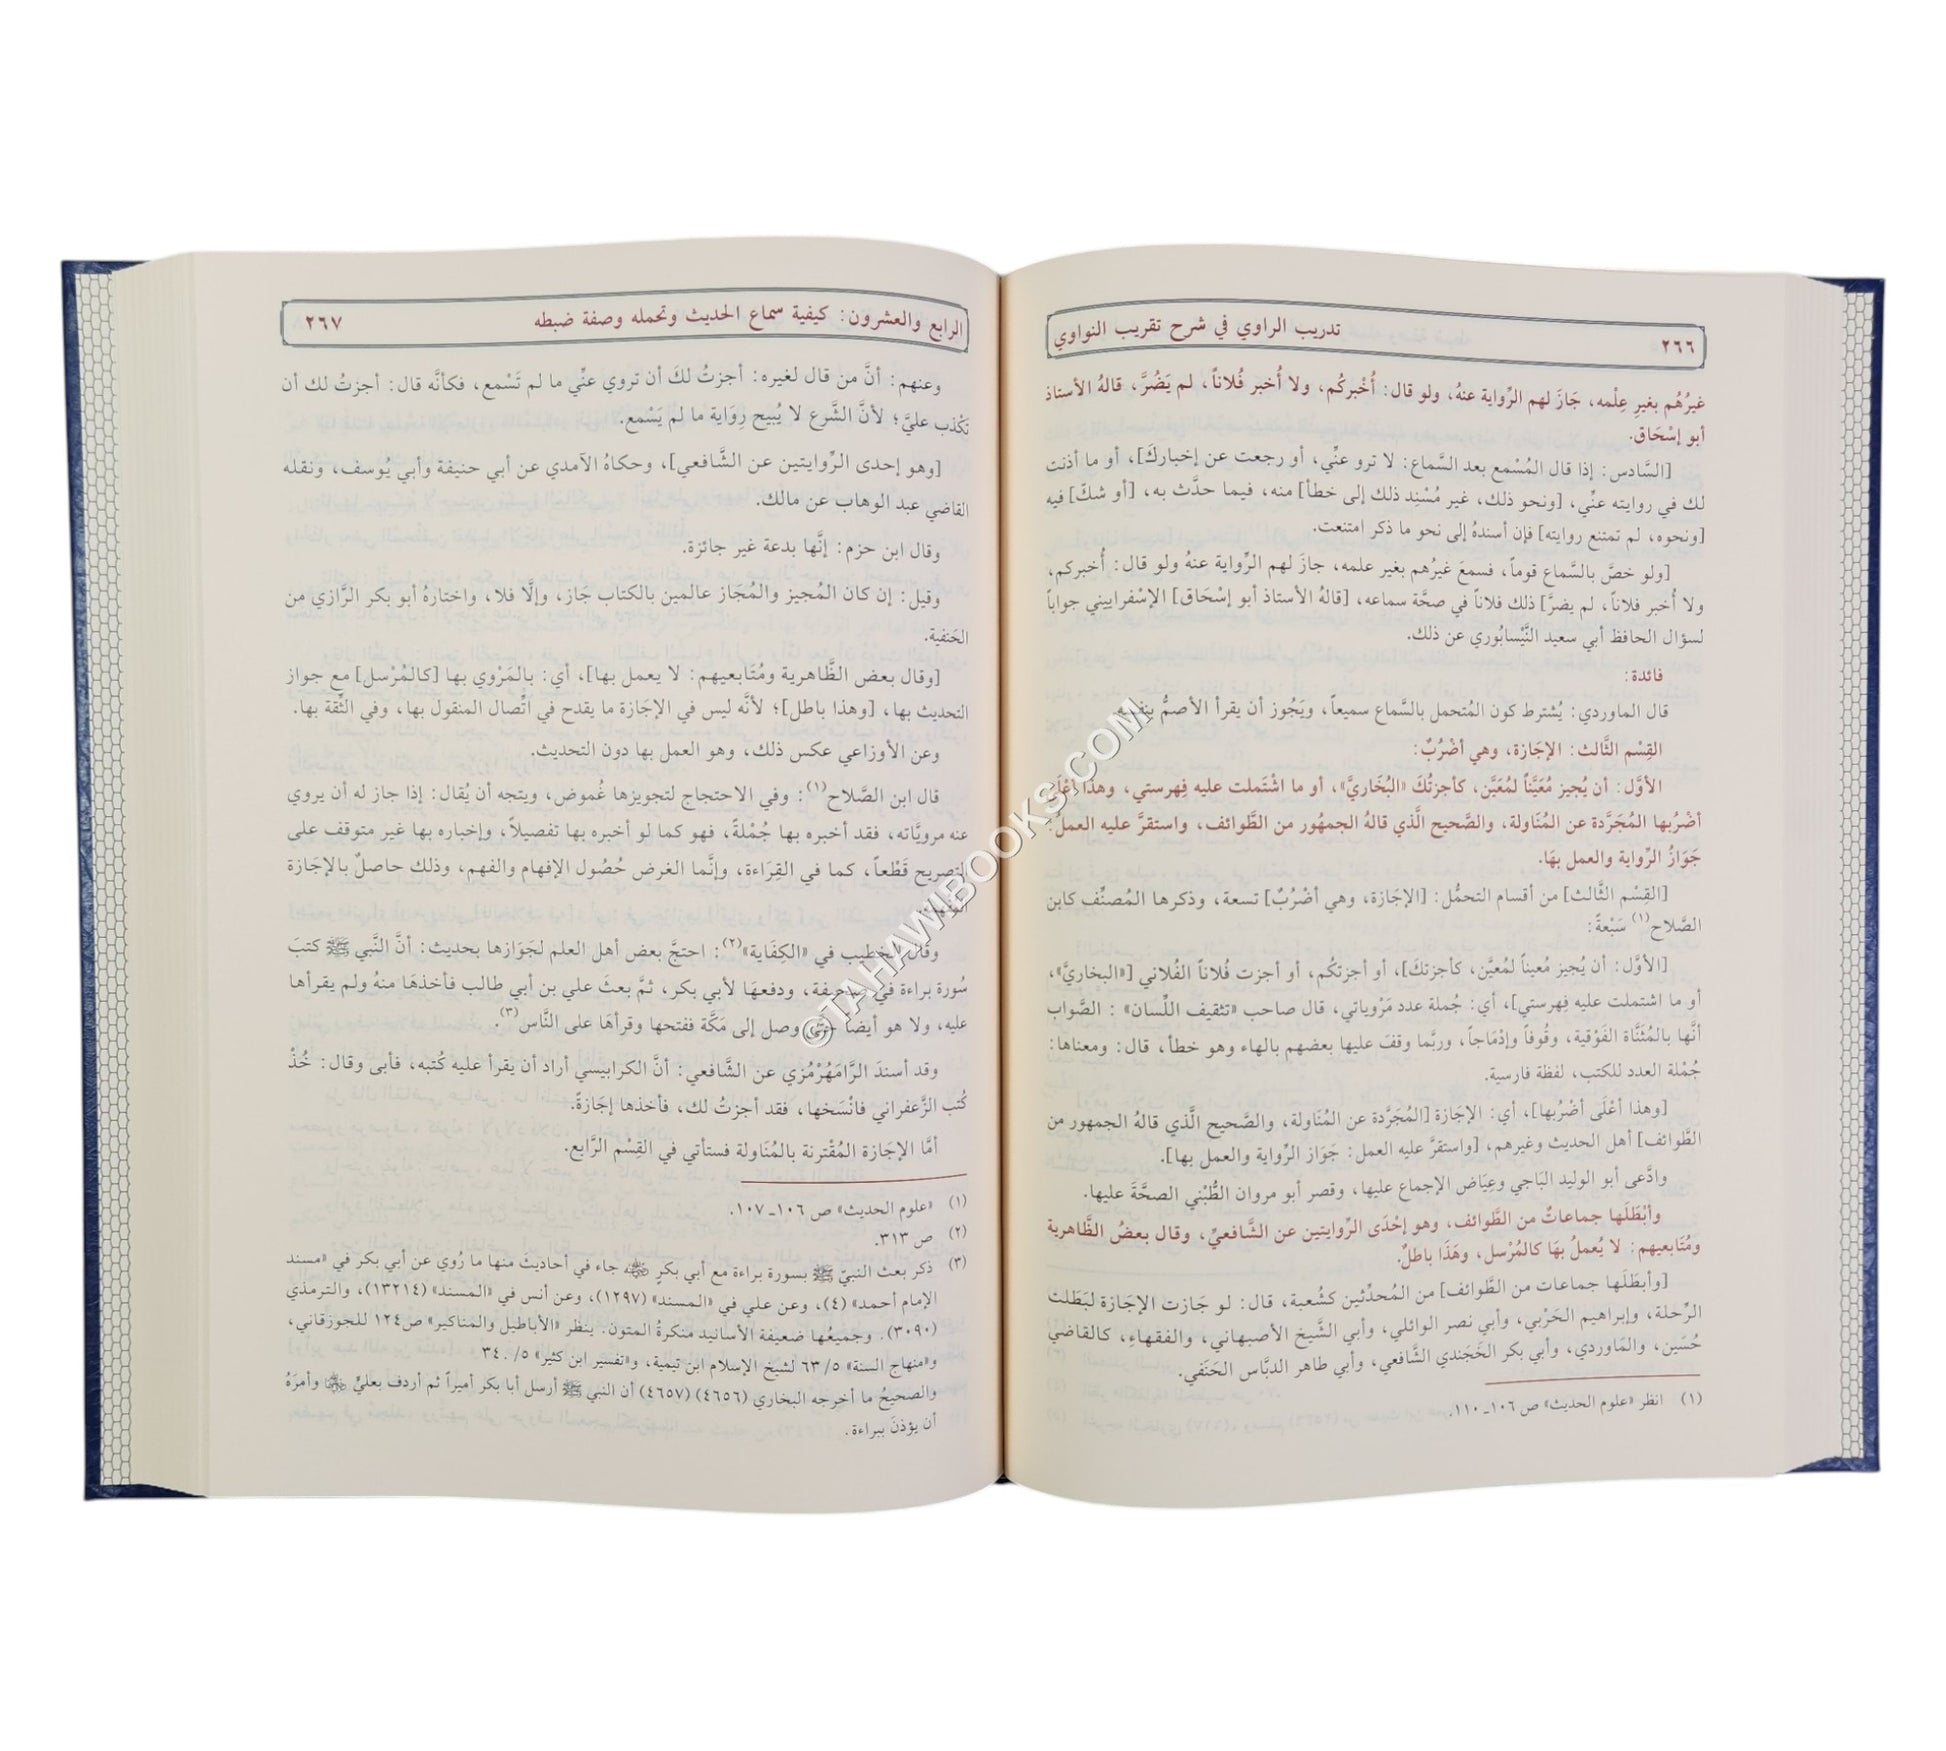 ٢٦٦ تدريب الراوي في شرح تقريب النواوي
غيرُهُم بغيرِ عِلْمه، جَازَ لهم الرِّواية عنهُ، ولو قال: أُخْبركُم، ولا أُخبر فُلاناً، لم يَضُرَّ، قالهُ الأستاذ
أبو إسْحَاق.
[السَّادس: إذا قال المُسْمع بعد السَّماع: لا ترو عنِّي، أو رجعت عن إخباركَ]، أو ما أذنت
لك في روايته عنِّي، [ونحو ذلك، غير مُسْنِد ذلك إلى خطأ] منه، فيما حدَّث به، [أو شكّ] فيه
[ونحوه، لم تمتنع روايته] فإن أسندهُ إلى نحو ما ذكر امتنعت.
[ولو خصَّ بالسَّماع قوماً، فسمعَ غيرُهم بغير علمه، جازَ لهم الرِّواية عنهُ ولو قال: أُخبركم،
ولا أُخبر فلاناً، لم يضرَّ] ذلك فلاناً في صحَّة سماعه، [قالهُ الأستاذ أبو إسْحَاق] الإسْفراييني جواباً
لسؤال الحافظ أبي سعيد النَّيْسابُوري عن ذلك.
فائدة:
قال الماوردي: يُشترط كون المُتحمل بالسَّماع سميعاً، ويَجُوز أن يقرأ الأصمُّ بنفسه.
القِسْم الثَّالث: الإجَازة، وهي أضْرُبٌ:
الأوَّل: أن يُجيز مُعَيَّناً لمُعَيَّن، كأجزتُكَ «البُخَاريَّ»، أو ما اشْتَملت عليه فِهرستي، وهذا أعْلَى
أضْرُبها المُجَرَّدة عن المُنَاولة، والصَّحيح الَّذي قالهُ الجمهُور من الطَّوائف، واستقرَّ عليه العمل:
جَوَازُ الرِّواية والعمل بهَا.
[القِسْم الثَّالث] من أقسام التحمُّل: [الإجَازة، وهي أضْرُبٌ] تسعة، وذكرها المُصنِّف كابن
الصَّلاح(١) سَبْعةً:
[الأوَّل: أن يُجيز مُعيناً لمُعيَّن، كأجزتكَ]، أو أجزتكُم، أو أجزت فُلاناً الفُلاني [«البخاريَّ»،
أو ما اشتملت عليه فِهرستي]، أي: جُملة عدد مَرْوياتي، قال صاحب «تثقيف اللِّسان»: الصَّواب
أنَّها بالمُثنَّاة الفَوْقية، وقُوفاً وإدْمَاجاً، وربَّما وقفَ عليها بعضهم بالهاء وهو خطأ، قال: ومعناها:
جُمْلة العدد للكتب، لفظة فارسية.
[وهذا أعْلَى أضْرُبها]، أي: الإجَازة [المُجَرَّدة عن المُنَاولة، والصَّحيح الَّذي قالهُ الجمهور من
الطَّوائف] أهل الحديث وغيرهم، [واستقرَّ عليه العمل: جَوَاز الرِّواية والعمل بها].
وادَّعى أبو الوليد البَاجي وعِيَاض الإجماع عليها، وقصر أبو مروان الطُّبْني الصحَّةَ عليها.
وأبْطَلَها جماعاتٌ من الطَّوائف، وهو إحْدَى الرِّوايتين عن الشَّافعيِّ، وقال بعضُ الظَّاهرية
ومُتَابعيهم: لا يُعملُ بهَا كالمُرْسل، وهَذَا باطلٌ.
[وأبطَلَها جماعات من الطَّوائف] من المُحدِّثين كشُعبة، قال: لو جَازت الإجَازة لبَطَلت
الرِّحلة، وإبراهيم الحَرْبي، وأبي نصر الوائلي، وأبي الشَّيخ الأصبهاني، والفقهاءِ، كالقاضي
حُسَين، والمَاوردي، وأبي بكر الخُجَندي الشَّافعي، وأبي طاهر الدبَّاس الحَنَفي.
(١) انظر «علوم الحديث» ص ١٠٦ـ ١١٠.
الرابع والعشرون: كيفية سماع الحديث وتحمله وصفة ضبطه ٢٦٧
وعنهم: أنَّ من قال لغيره: أجزتُ لكَ أن تروي عنِّي ما لم تَسْمع، فكأنَّه قال: أجزتُ لك أن
تَكْذب عليَّ؛ لأنَّ الشَّرع لا يُبيح رِوَاية ما لم يَسْمع.
[وهو إحدى الرِّوايتين عن الشَّافعي]، وحكاهُ الآمدي عن أبي حنيفة وأبي يُوسف، ونقله
القاضي عبد الوهاب عن مالك.
وقال ابن حزم: إنَّها بدعة غير جائزة.
وقيل: إن كان المُجيز والمُجَاز عالمين بالكتاب جَاز، وإلَّا فلا، واختارهُ أبو بكر الرَّازي من
الحَنفية.
[وقال بعض الظَّاهرية ومُتَابعيهم: لا يعمل بها]، أي: بالمَرْوي بها [كالمُرْسل] مع جواز
التحديث بها، [وهذا باطل]؛ لأنَّه ليس في الإجَازة ما يقدح في اتِّصال المنقول بها، وفي الثِّقة بها.
وعن الأوزاعي عكس ذلك، وهو العمل بها دون التحديث.
قال ابن الصَّلاح(١): وفي الاحتجاج لتجويزها غُموض، ويتجه أن يُقال: إذا جاز له أن يروي
عنه مرويَّاته، فقد أخبره بها جُمْلةً، فهو كما لو أخبره بها تفصيلاً، وإخباره بها غير متوقف على
التصريح قَطْعاً، كما في القِرَاءة، وإنَّما الغرض حُصُول الإفهام والفهم، وذلك حاصلٌ بالإجَازة
وقال الخطيب في «الكِفَاية»(٢): احتجَّ بعض أهل العلم لجَوَازها بحديث: أنَّ النَّبي ﷺ كتبَ
سُورة براءة في صحيفة، ودفعهَا لأبي بكر، ثمَّ بعثَ علي بن أبي طالب فأخذهَا منهُ ولم يقرأها
عليه، ولا هو أيضاً حتى وصل إلى مَكَّة ففتحها وقرأهَا على النَّاس(٣).
وقد أسندَ الرَّامَهُرْمُزي عن الشَّافعي: أنَّ الكرابيسي أراد أن يقرأ عليه كُتبه، فأبى وقال: خُذْ
كُتب الزَّعفراني فانْسَخها، فقد أجزتُ لك، فأخذها إجَازةً.
أمَّا الإجَازة المُقْترنة بالمُنَاولة فستأتي في القِسْم الرَّابع.
(١) «علوم الحديث» ص ١٠٦ـ ١٠٧.
(٢) ص ٣١٣.
(٣) ذكر بعث النبيّ ﷺ بسورة براءة مع أبي بكرٍ رضي الله عنه جاء في أحاديثَ منها ما رُوي عن أبي بكر في «مسند
الإمام أحمد» (٤)، وعن علي في «المسند» (١٢٩٧)، وعن أنس في «المسند» (١٣٢١٤)، والترمذي
(٣٠٩٠). وجميعُها ضعيفة الأسانيد منكرةُ المتون. ينظر «الأباطيل والمناكير» ص١٢٤ للجوزقاني،
و«منهاج السنة» ٥/ ٦٣ لشيخ الإسلام ابن تيمية، و«تفسير ابن كثير» ٥/ ٣٤٠.
والصحيحُ ما أخرجه البخاري (٤٦٥٦) (٤٦٥٧) أن النبي ﷺ أرسل أبا بكر أميراً ثم أردف بعليٍّ رضي الله عنه وأمرَهُ
أن يؤذنَ ببراءة.
©TAHAWIBOOKS.COM